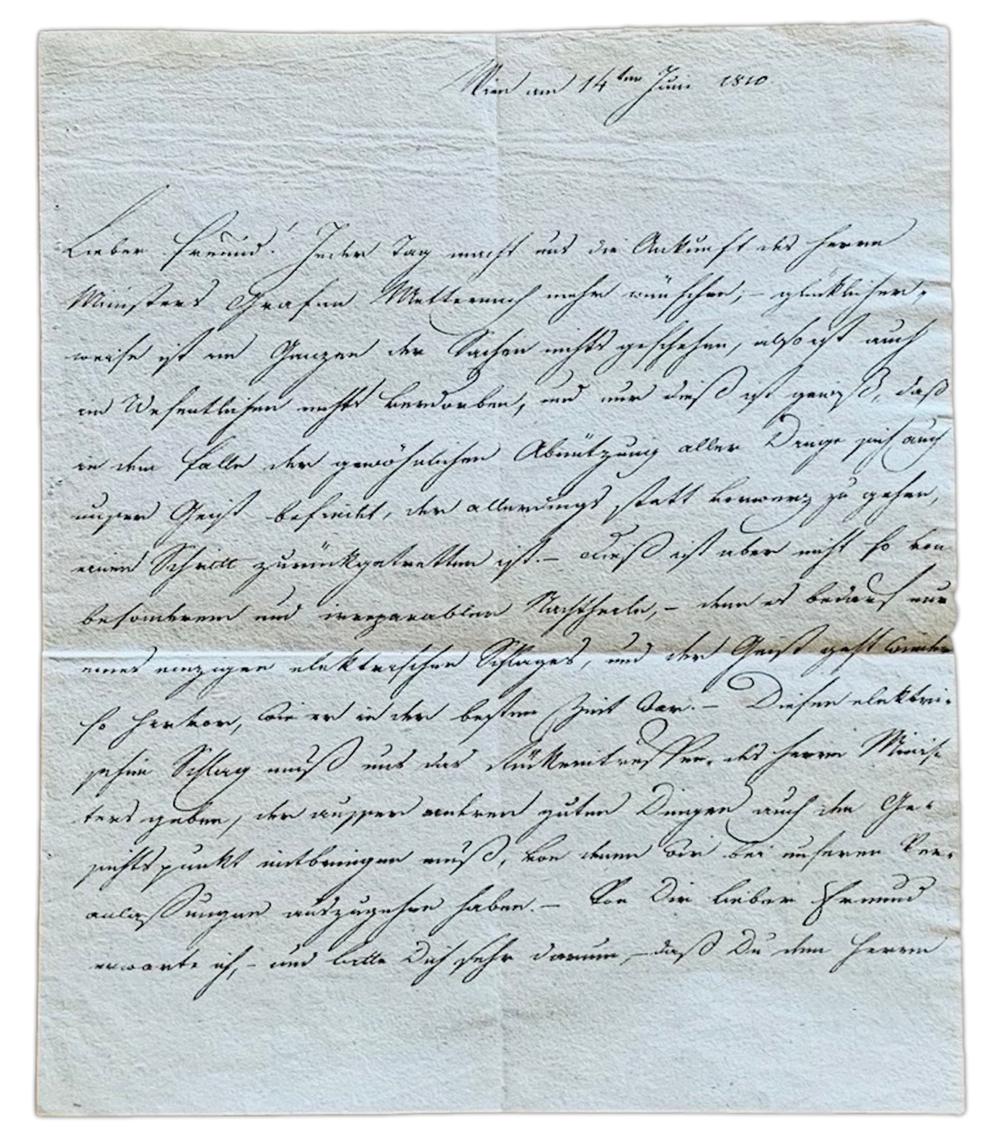 Wien am 14ten Juni 1810
Lieber Freund! Jeder Tag macht uns die Ankunft des Herrn
Ministers Grafen Metternich mehr wünschen; – glücklicher-
weise ist im Ganzen der Sachen nichts geschehen, also ist auch
im Wesentlichen nichts verdorben, und nur dieß ist gewiß, daß
in dem Falle der gewöhnlichen Abnützung aller Dinge sich auch
unser Geist befindet, der allerdings statt vorwerz zu gehen,
einen Schritt zurückgetretten ist. – dieß ist aber nicht so von
besonderem und irreparablen Nachtheile, – denn es bedarf nur
eines einzigen elektrischen Schlages, und der Geist geht wieder
so hervor, wie er in der besten Zeit war. – Diesen elektri-
schen Schlag muß uns das Rückeintreffen des Herrn Minis-
ters geben, der ausser anderen guten Dingen auch den Ge-
sichtspunkt mitbringen muß, von denen wir bei unseren Ver-
anlassungen auszugehen haben. – Von Dir lieber Freund
erwarte ich, – und bitte Dich sehr darum, – daß Du dem Herrn